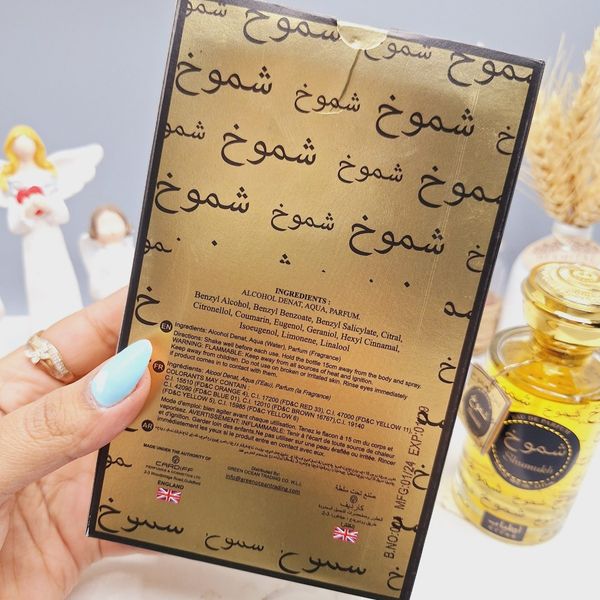 شموخ
شموخ شموخ
شموخ شموخ شموخ
شموخ شموخ
شموخ شموخ شموخ
INGREDIENTS :
ALCOHOL DENAT, AQUA, PARFUM.
Benzyl Alcohol, Benzyl Benzoate, Benzyl Salicylate, Citral,
Citronellol, Coumarin, Eugenol, Geraniol, Hexyl Cinnamal,
Isoeugenol, Limonene, Linalool
EN Ingredients: Alcohol Denat, Aqua (Water), Parfum (Fragrance)
Directions: Shake well before each use. Hold the bottle 15cm from the body and spray.
WARNING: FLAMMABLE: Keep away from all sources of heat and ignition.
Keep away from children. Do not use on broken or irritated skin. Rinse eyes immediately
if product comes in to contact with them.
FR Ingrédients: Alcool Denat, Aqua (L'Eau), Parfum (la Fragrance)
COLORANTS MAY CONTAIN :
C.I. 15510 (FD&C ORANGE 4), C.I. 17200 (FD&C RED 33), C.I. 47000 (FD&C YELLOW 11),
C.I. 42090 (FD&C BLUE 01), C.I. 12010 (FD&C BROWN 16767), C.I. 19140
(FD&C YELLOW 5), C.I. 15985 (FD&C YELLOW 6)
Mode d'emploi: bien agiter avant chaque utilisation. Tenez le flacon à 15 cm du corps et
vaporisez. AVERTISSEMENT: INFLAMMABLE: Tenir à l'écart de toute source de chaleur
et d'ignition. Garder loin des enfants. Ne pas utiliser sur une peau éraflée ou irritée. Rincer
immédiatement les yeux si le produit entre en contact avec eux.
AR
MADE UNDER THE AUTHORITY OF
CARDIFF
PERFUMES & COSMETICS LTD
2-3 Woodbridge Road, Guildford
ENGLAND
Distributed By:
GREEN OCEAN TRADING CO. W.L.L
info@greenoceantrading.com
صنع تحت سلطة
كارديف
إنجلترا
MFG:01/24
شموخ شموخ
شموخ
Shumukh